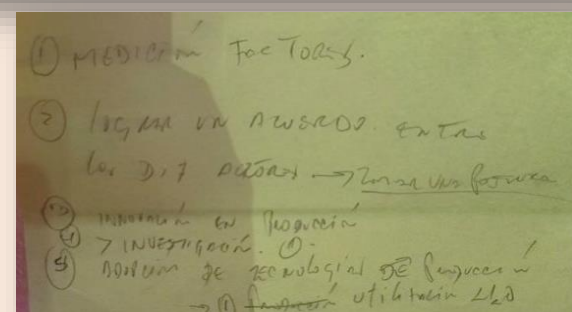 ① MEDICIÓN FACTORES.
② LOGRAR UN ACUERDO ENTRE
los DIF ACTORES → TOMAR UNA POSTURA
③ INNOVACIÓN EN PRODUCCIÓN
④ > INVESTIGACIÓN. ①.
⑤ ADOPCIÓN DE TECNOLOGÍAS DE PRODUCCIÓN
→ ① utilización H₂O